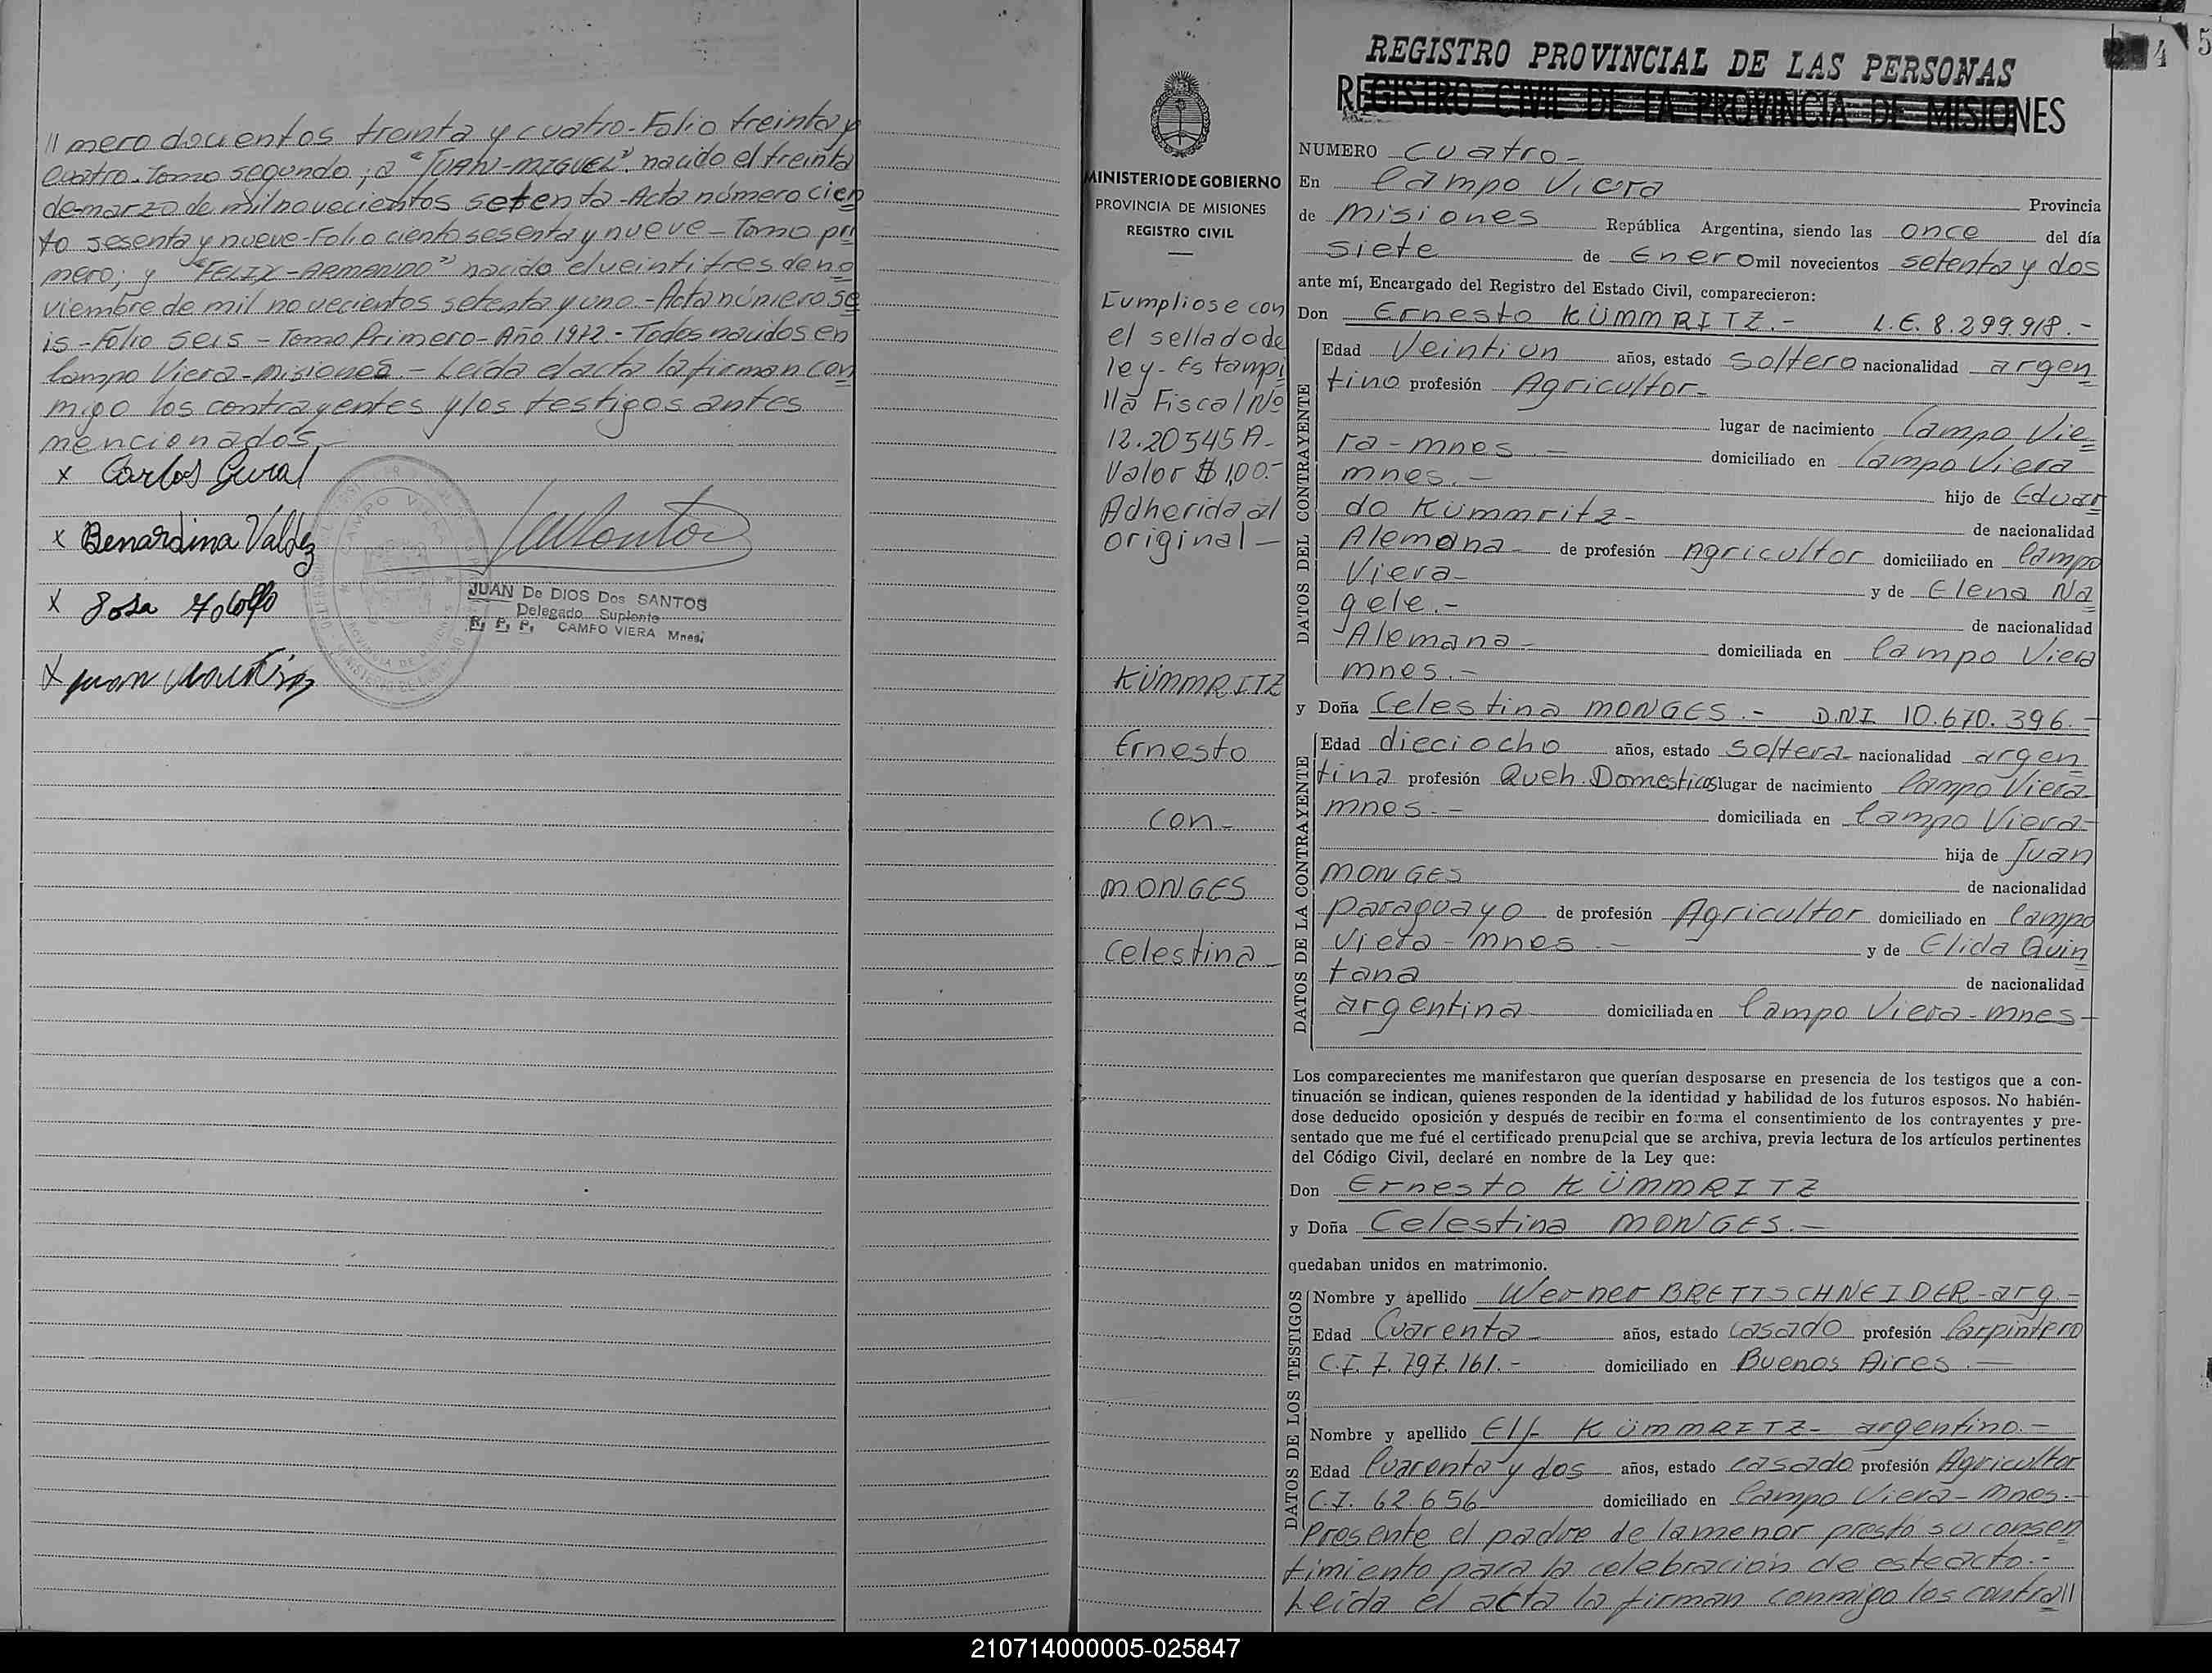 // mero docientos treinta y cuatro-Folio treinta y
cuatro-Tomo segundo; a "JUAN-MIGUEL". nacido el treinta
de marzo de mil novecientos setenta-Acta número cien
to sesenta y nueve-Folio ciento sesenta y nueve-Tomo pri
mero; y "FELIX-ARMANDO" nacido el veintitres de no
viembre de mil novecientos setenta y uno.-Acta número se
is-Folio seis-Tomo Primero-Año 1972.-Todos nacidos en
Campo Viera-Misiones.-Leída el acta la firman con
migo los contrayentes y los testigos antes
mencionados.-
x Carlos Gural
x Benardina Valdez
x Sosa
x Juan
CAMPO VIERA
JUAN De DIOS Dos SANTOS
Delegado Suplente
R. P. P. CAMPO VIERA Mnes.
MINISTERIO DE GOBIERNO
PROVINCIA DE MISIONES
REGISTRO CIVIL
Cumpliose con
el sellado de
ley-Estampi
lla Fiscal Nº
12.20545A-
Valor $ 1,00.-
Adherida al
original-
KÜMMRITZ
Ernesto
con-
MONGES
Celestina-
4 5
REGISTRO PROVINCIAL DE LAS PERSONAS
REGISTRO CIVIL DE LA PROVINCIA DE MISIONES
NUMERO Cuatro-
En Campo Viera Provincia
de Misiones República Argentina, siendo las once del día
siete de Enero mil novecientos setenta y dos
ante mí, Encargado del Registro del Estado Civil, comparecieron:
Don Ernesto KÜMMRITZ.- L.E. 8.299.918.-
DATOS DEL CONTRAYENTE
Edad Veintiun años, estado soltero nacionalidad argen
tino profesión Agricultor-
lugar de nacimiento Campo Vie
ra-mnes.- domiciliado en Campo Viera
mnes.- hijo de Eduar
do Kümmritz- de nacionalidad
Alemana- de profesión Agricultor domiciliado en Campo
Viera- y de Elena Nä
gele.- de nacionalidad
Alemana- domiciliada en Campo Viera
mnes.-
y Doña Celestina MONGES.- D.N.I 10.670.396.-
DATOS DE LA CONTRAYENTE
Edad dieciocho años, estado soltera- nacionalidad argen
tina profesión Queh. Domesticos lugar de nacimiento Campo Viera-
mnes.- domiciliada en Campo Viera-
hija de Juan
MONGES de nacionalidad
paraguayo de profesión Agricultor domiciliado en Campo
Viera-mnes.- y de Elida Quin
tana de nacionalidad
argentina domiciliada en Campo Viera-mnes-
Los comparecientes me manifestaron que querían desposarse en presencia de los testigos que a con-
tinuación se indican, quienes responden de la identidad y habilidad de los futuros esposos. No habién-
dose deducido oposición y después de recibir en forma el consentimiento de los contrayentes y pre-
sentado que me fué el certificado prenupcial que se archiva, previa lectura de los artículos pertinentes
del Código Civil, declaré en nombre de la Ley que:
Don Ernesto KÜMMRITZ
y Doña Celestina MONGES.-
quedaban unidos en matrimonio.
DATOS DE LOS TESTIGOS
Nombre y apellido Werner BRETTSCHNEIDER-arg.-
Edad Cuarenta- años, estado casado profesión Carpintero
C.I. 7.797.161.- domiciliado en Buenos Aires.-
Nombre y apellido Elf- KÜMMRITZ- argentino.-
Edad Cuarenta y dos años, estado casado profesión Agricultor
C.I. 62.656- domiciliado en Campo Viera-Mnes.-
Presente el padre de la menor prestó su consen
timiento para la celebración de este acto.-
Leída el acta la firman conmigo los contra//
210714000005-025847